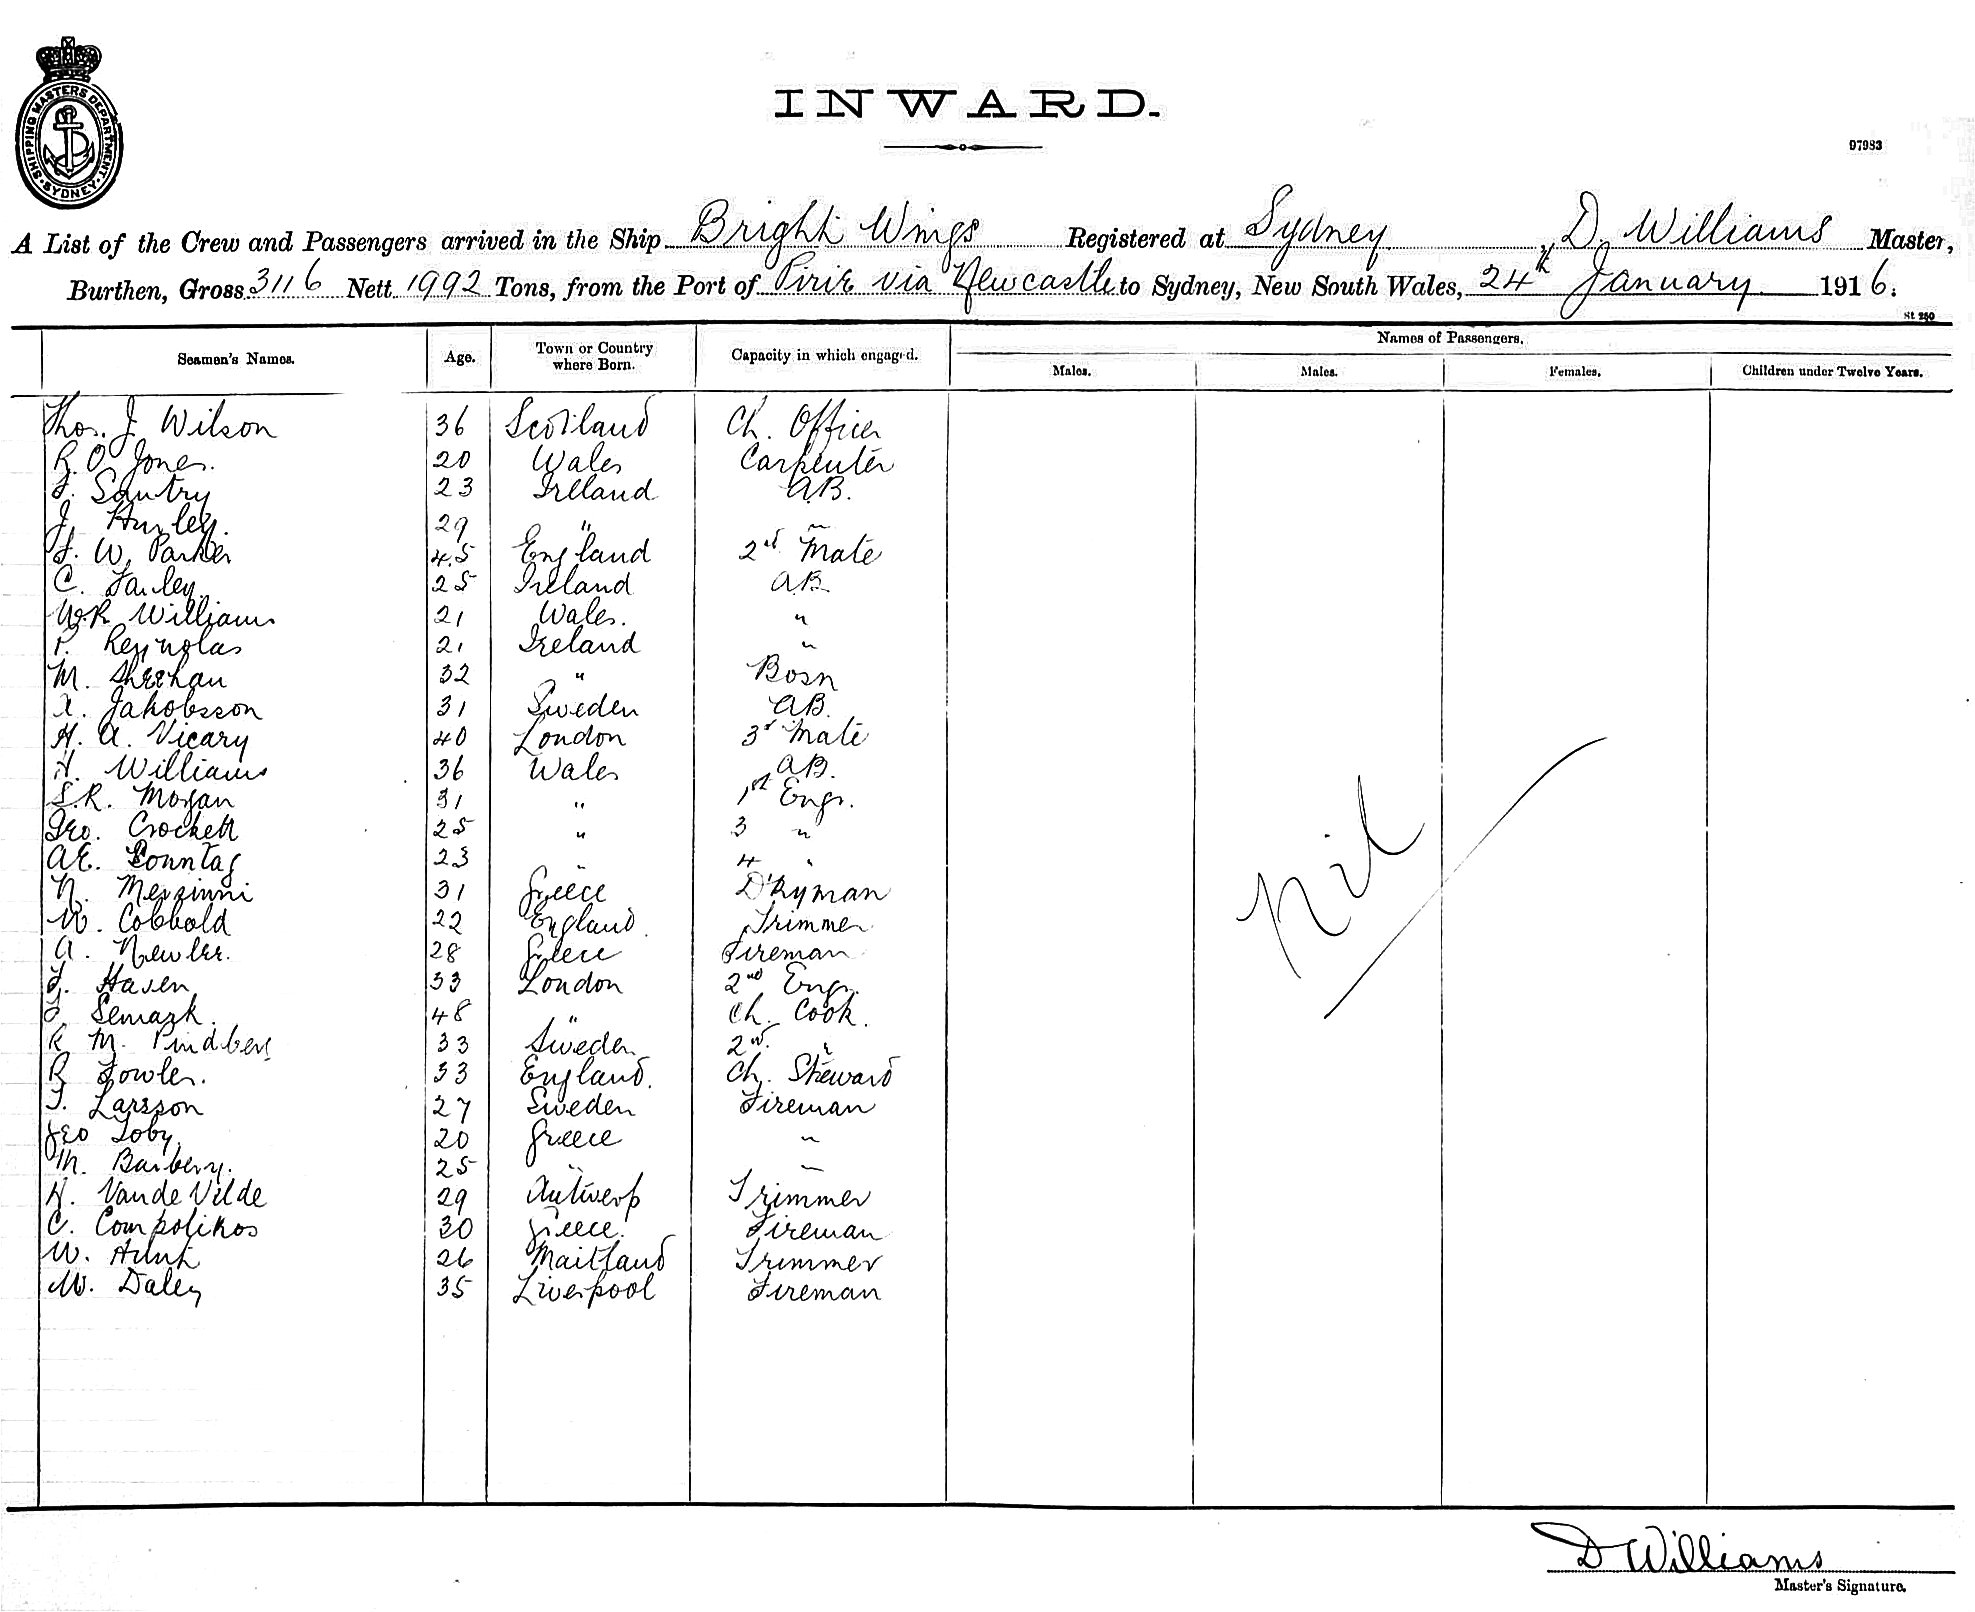 SHIPPING MASTERS DEPARTMENT · SYDNEY ·
INWARD.
97983
A List of the Crew and Passengers arrived in the Ship Bright Wings Registered at Sydney, D. Williams Master,
Burthen, Gross 3116 Nett 1992 Tons, from the Port of Pirie via Newcastle to Sydney, New South Wales, 24th January 1916.
St 250
Seamen's Names. Age. Town or Country where Born. Capacity in which engaged. Names of Passengers.
Males. Males. Females. Children under Twelve Years.
Thos. J. Wilson 36 Scotland Ch. Officer
R. O. Jones. 20 Wales Carpenter
Santry 23 Ireland A.B.
J. Hurley. 29 " "
W. Parker 45 England 2nd Mate
C. 25 Ireland A.B.
W.R. Williams 21 Wales. "
Reynolds 21 Ireland "
M. Sheehan 32 " Bosn
Jakobsson 31 Sweden A.B.
H. A. Vicary 40 London 3rd Mate
H. Williams 36 Wales A.B.
S.R. Morgan 31 " 1st Engr.
Geo. Crockett 25 " 3 "
A.E. Sonntag 23 " 4 "
N. 31 Greece D'kyman
W. Cobbold 22 England. Trimmer
A. 28 Greece Fireman
Haven 33 London 2nd Engr.
Semark. 48 " Ch. Cook.
M. 33 Sweden 2nd "
R Fowler. 33 England. Ch. Steward
Larsson 27 Sweden Fireman
Geo Toby. 20 Greece "
M. Barbery. 25 " "
H. Van de Vilde 29 Antwerp Trimmer
C. Compolikos 30 Greece. Fireman
W. Hunt 26 Maitland Trimmer
W. Daley 35 Liverpool Fireman
Nil
D Williams
Master's Signature.